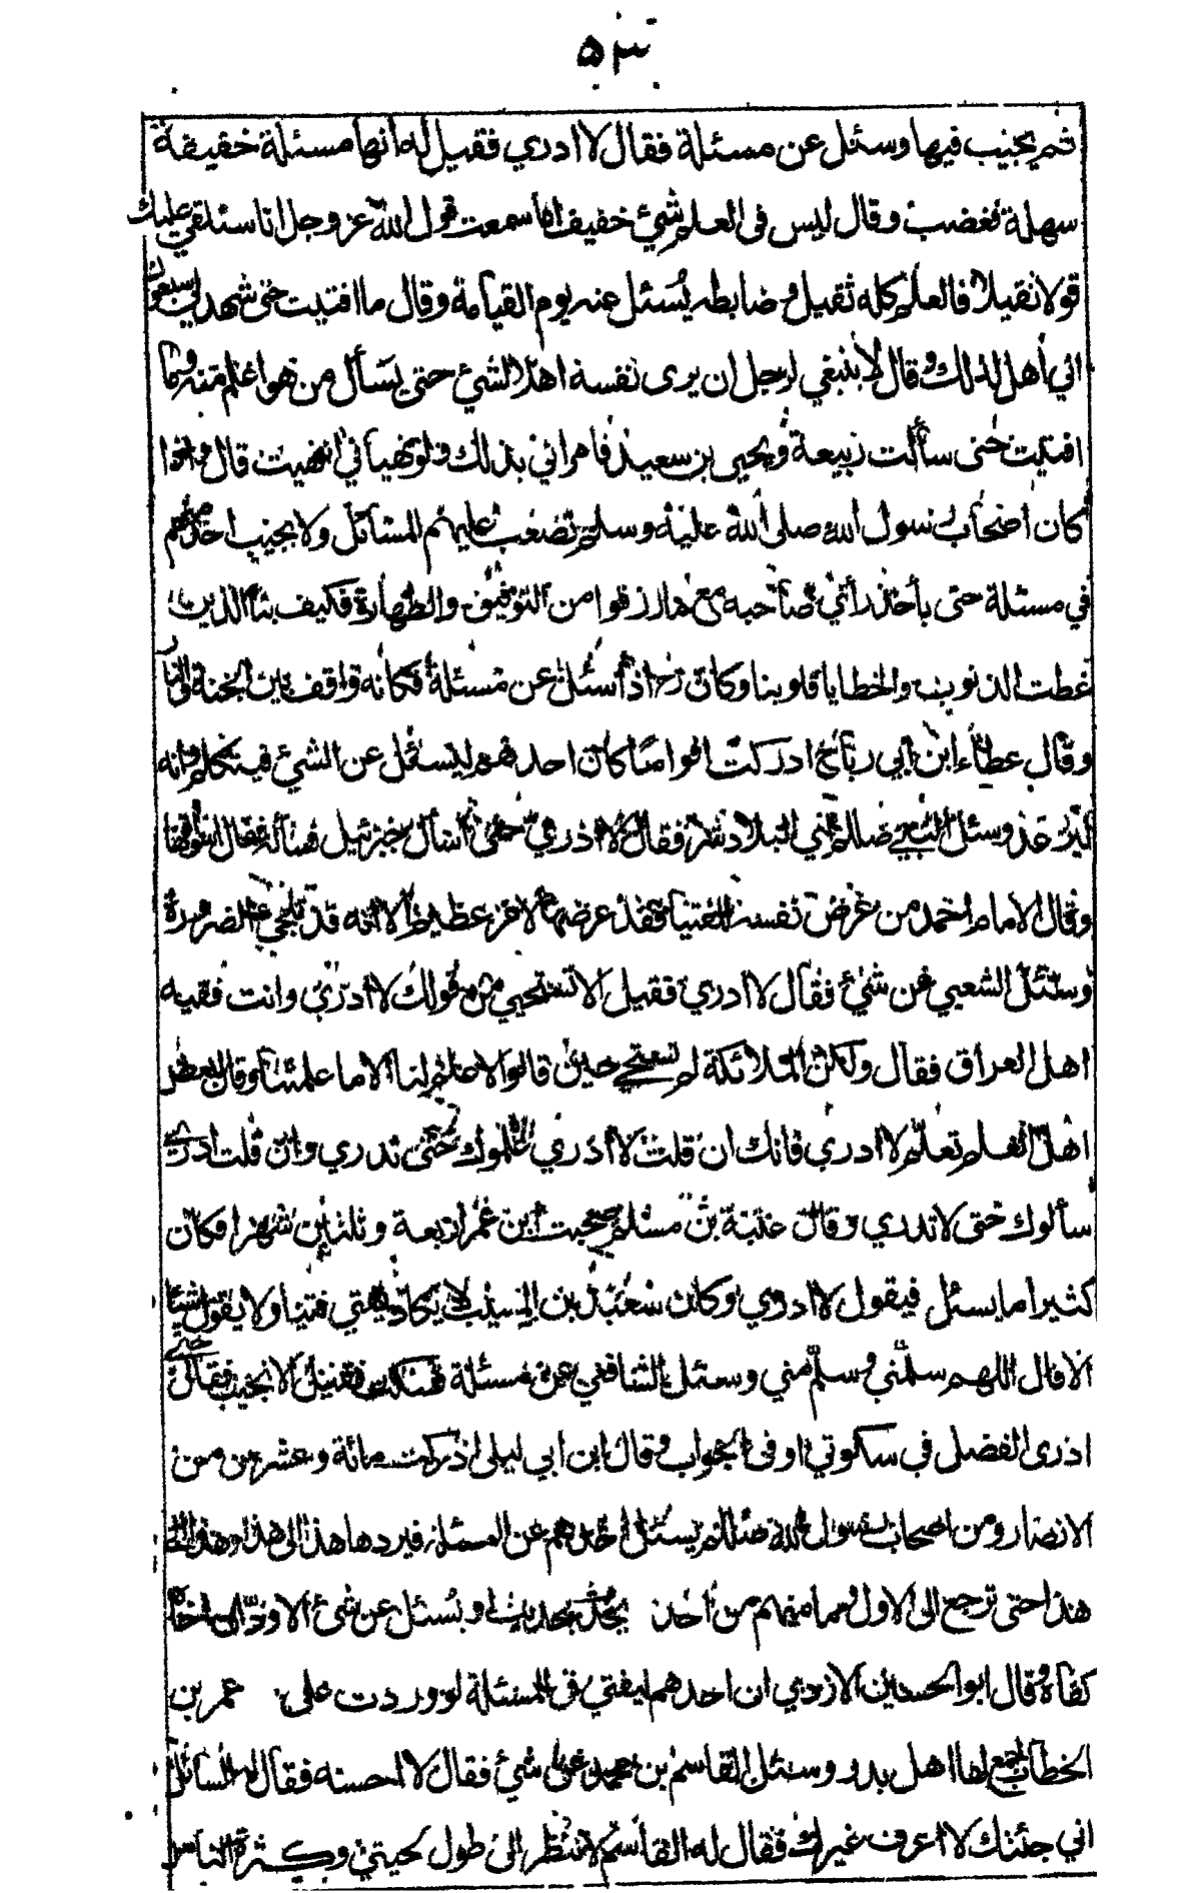 ٥٣
ثم يجيب فيها وسئل عن مسئلة فقال لا ادري فقيل له انها مسئلة خفيفة
سهلة فغضب وقال ليس في العلم شيئ خفيف اما سمعت قول الله عز وجل انا سنلقي عليك
قولا ثقيلا فالعلم كله ثقيل وضابطه يسئل عنه يوم القيامة وقال ما افتيت حتى شهد لي سبعون
اني أهل لذلك وقال لا ينبغي لرجل ان يرى نفسه اهلا لشيئ حتى يسأل من هو اعلم منه وما
افتيت حتى سألت ربيعة ويحيى بن سعيد فامراني بذلك ولو نهياني انتهيت قال واذا
كان اصحاب رسول الله صلى الله عليه وسلم تصعب عليهم المسائل ولا يجيب احدهم
في مسئلة حتى يأخذ رأي صاحبه مع ما رزقوا من التوفيق والطهارة فكيف بنا الذين
غطت الذنوب والخطايا قلوبنا وكان رح اذا سئل عن مسئلة فكأنه واقف بين الجنة والنار
وقال عطاء ابن ابي رباح ادركت اقواما كان احدهم ليسئل عن الشيئ فيتكلم وانه
ليرعد وسئل النبي صللم اي البلاد شر فقال لا ادري حتى اسأل جبرئيل فسأله فقال اسواقها
وقال الامام احمد من عرض نفسه للفتيا فقد عرضها لامر عظيم الا انه قد تلجئ الضرورة
وسئل الشعبي عن شيئ فقال لا ادري فقيل الا تستحيي من قولك لا ادري وانت فقيه
اهل العراق فقال ولكن الملائكة لم تستحي حين قالوا لا علم لنا الا ما علمتنا وقال بعض
اهل العلم تعلم لا ادري فانك ان قلت لا ادري علموك حتى تدري وان قلت ادري
سألوك حتى لا تدري وقال عتبة بن مسئلم صحبت ابن عمر اربعة وثلثين شهرا فكان
كثيرا ما يسئل فيقول لا ادري وكان سعيد بن المسيب لا يكاد يفتي فتيا ولا يقول شيئا
الا قال اللهم سلمني وسلم مني وسئل الشافعي عن مسئلة فسكت فقيل الا تجيب فقال حتى
ادرى الفضل في سكوتي او في الجواب وقال ابن ابي ليلى ادركت مائة وعشرين من
الانصار ومن اصحاب رسول الله صللم يسئل احدهم عن المسئلة فيردها هذا الى هذا وهذا الى
هذا حتى ترجع الى الاول وما منهم من احد يحدث بحديث او يسئل عن شيئ الا ود ان اخاه
كفاه وقال ابو الحسين الازدي ان احدهم ليفتي في المسئلة لو وردت على عمر بن
الخطاب لجمع لها اهل بدر وسئل القاسم بن محمد عن شيئ فقال لا احسنه فقال له السائل
اني جئتك لا اعرف غيرك فقال له القاسم لا تنظر الى طول لحيتي وكثرة الناس